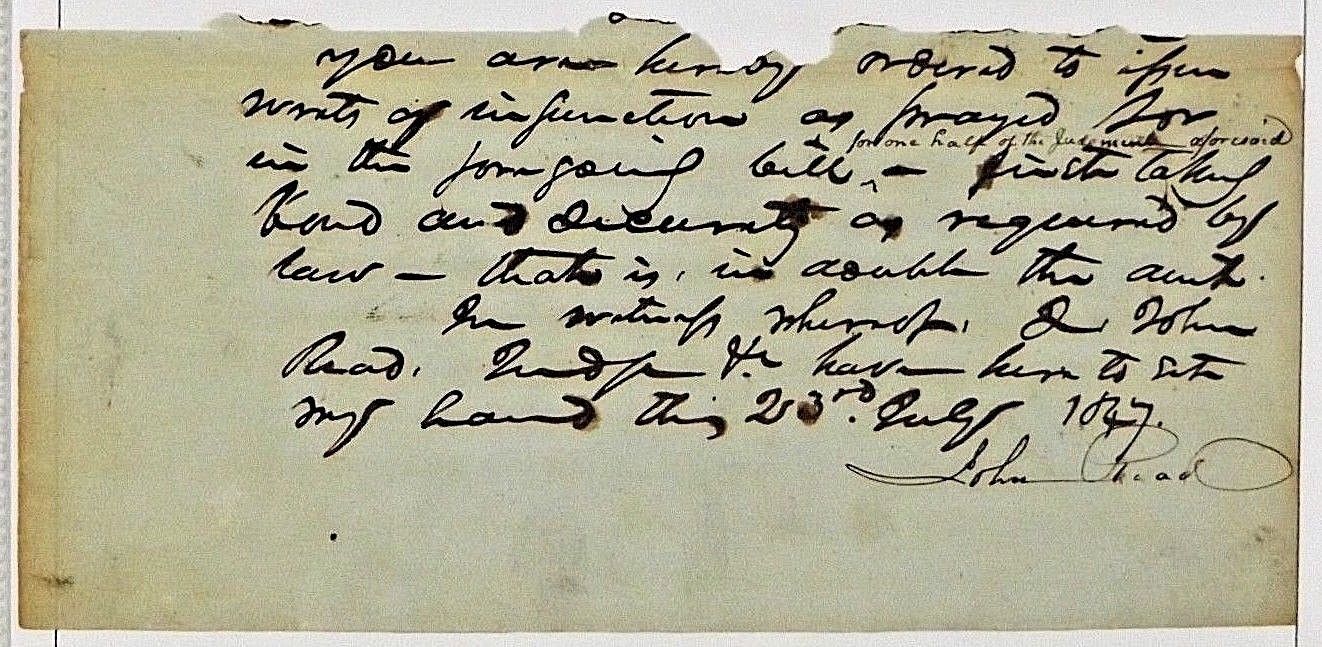 you are hereby ordered to issue
writs of injunction as prayed for
for one half of the Judgment aforesaid
in the foregoing bill ‸ – first taking
bond and security as required by
law – that is, in double the amt.
In witness whereof, I, John
Read, Judge &c have here to set
my hand this 23rd. July 1847.
John Read